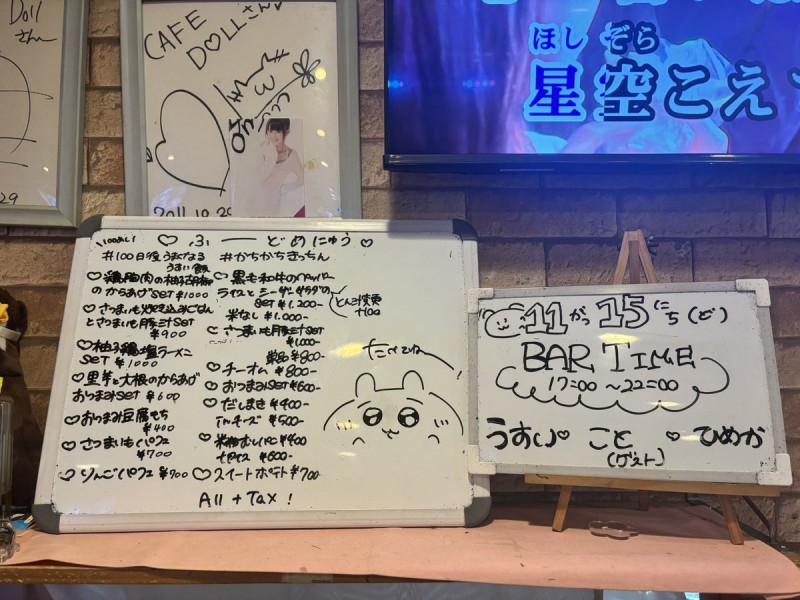 Doll
さん
29
CAFE
DOLLさん
2011.10.29
ほし ぞら
星空こえ
100めし!
♡ ふーどめにゅう ♡
#100日後うまくなる
うすい飯
#かちかちきっちん
♡鶏胸肉の柚子胡椒
のからあげSET ¥1000
♡さつまいも炊き込みごはん
とさつまいも豚汁SET
¥900
♡柚子鶏塩ラーメン
SET ¥1000
♡里芋と大根のからあげ
おつまみSET ¥600
♡おつまみ豆腐もち
¥400
♡さつまいもパフェ
¥700
♡りんごパフェ ¥700
♡黒毛和牛のペッパー
ライスとシーザーサラダの
SET ¥1,200-
とん汁変更
+100
米なし ¥1.000-
♡さつまいも豚汁SET
¥1,000-
単品 ¥800-
♡チーオム ¥800-
♡おつまみSET ¥600-
♡だしまき ¥400-
チーズ ¥500-
♡米粉むしパン ¥400
¥600-
♡スイートポテト ¥700
All + Tax !
たべてね
11がつ15にち(ど)
BAR TIME
17:00 ~22:00
うすい♡ こと ♡ ひめか
(ゲスト)